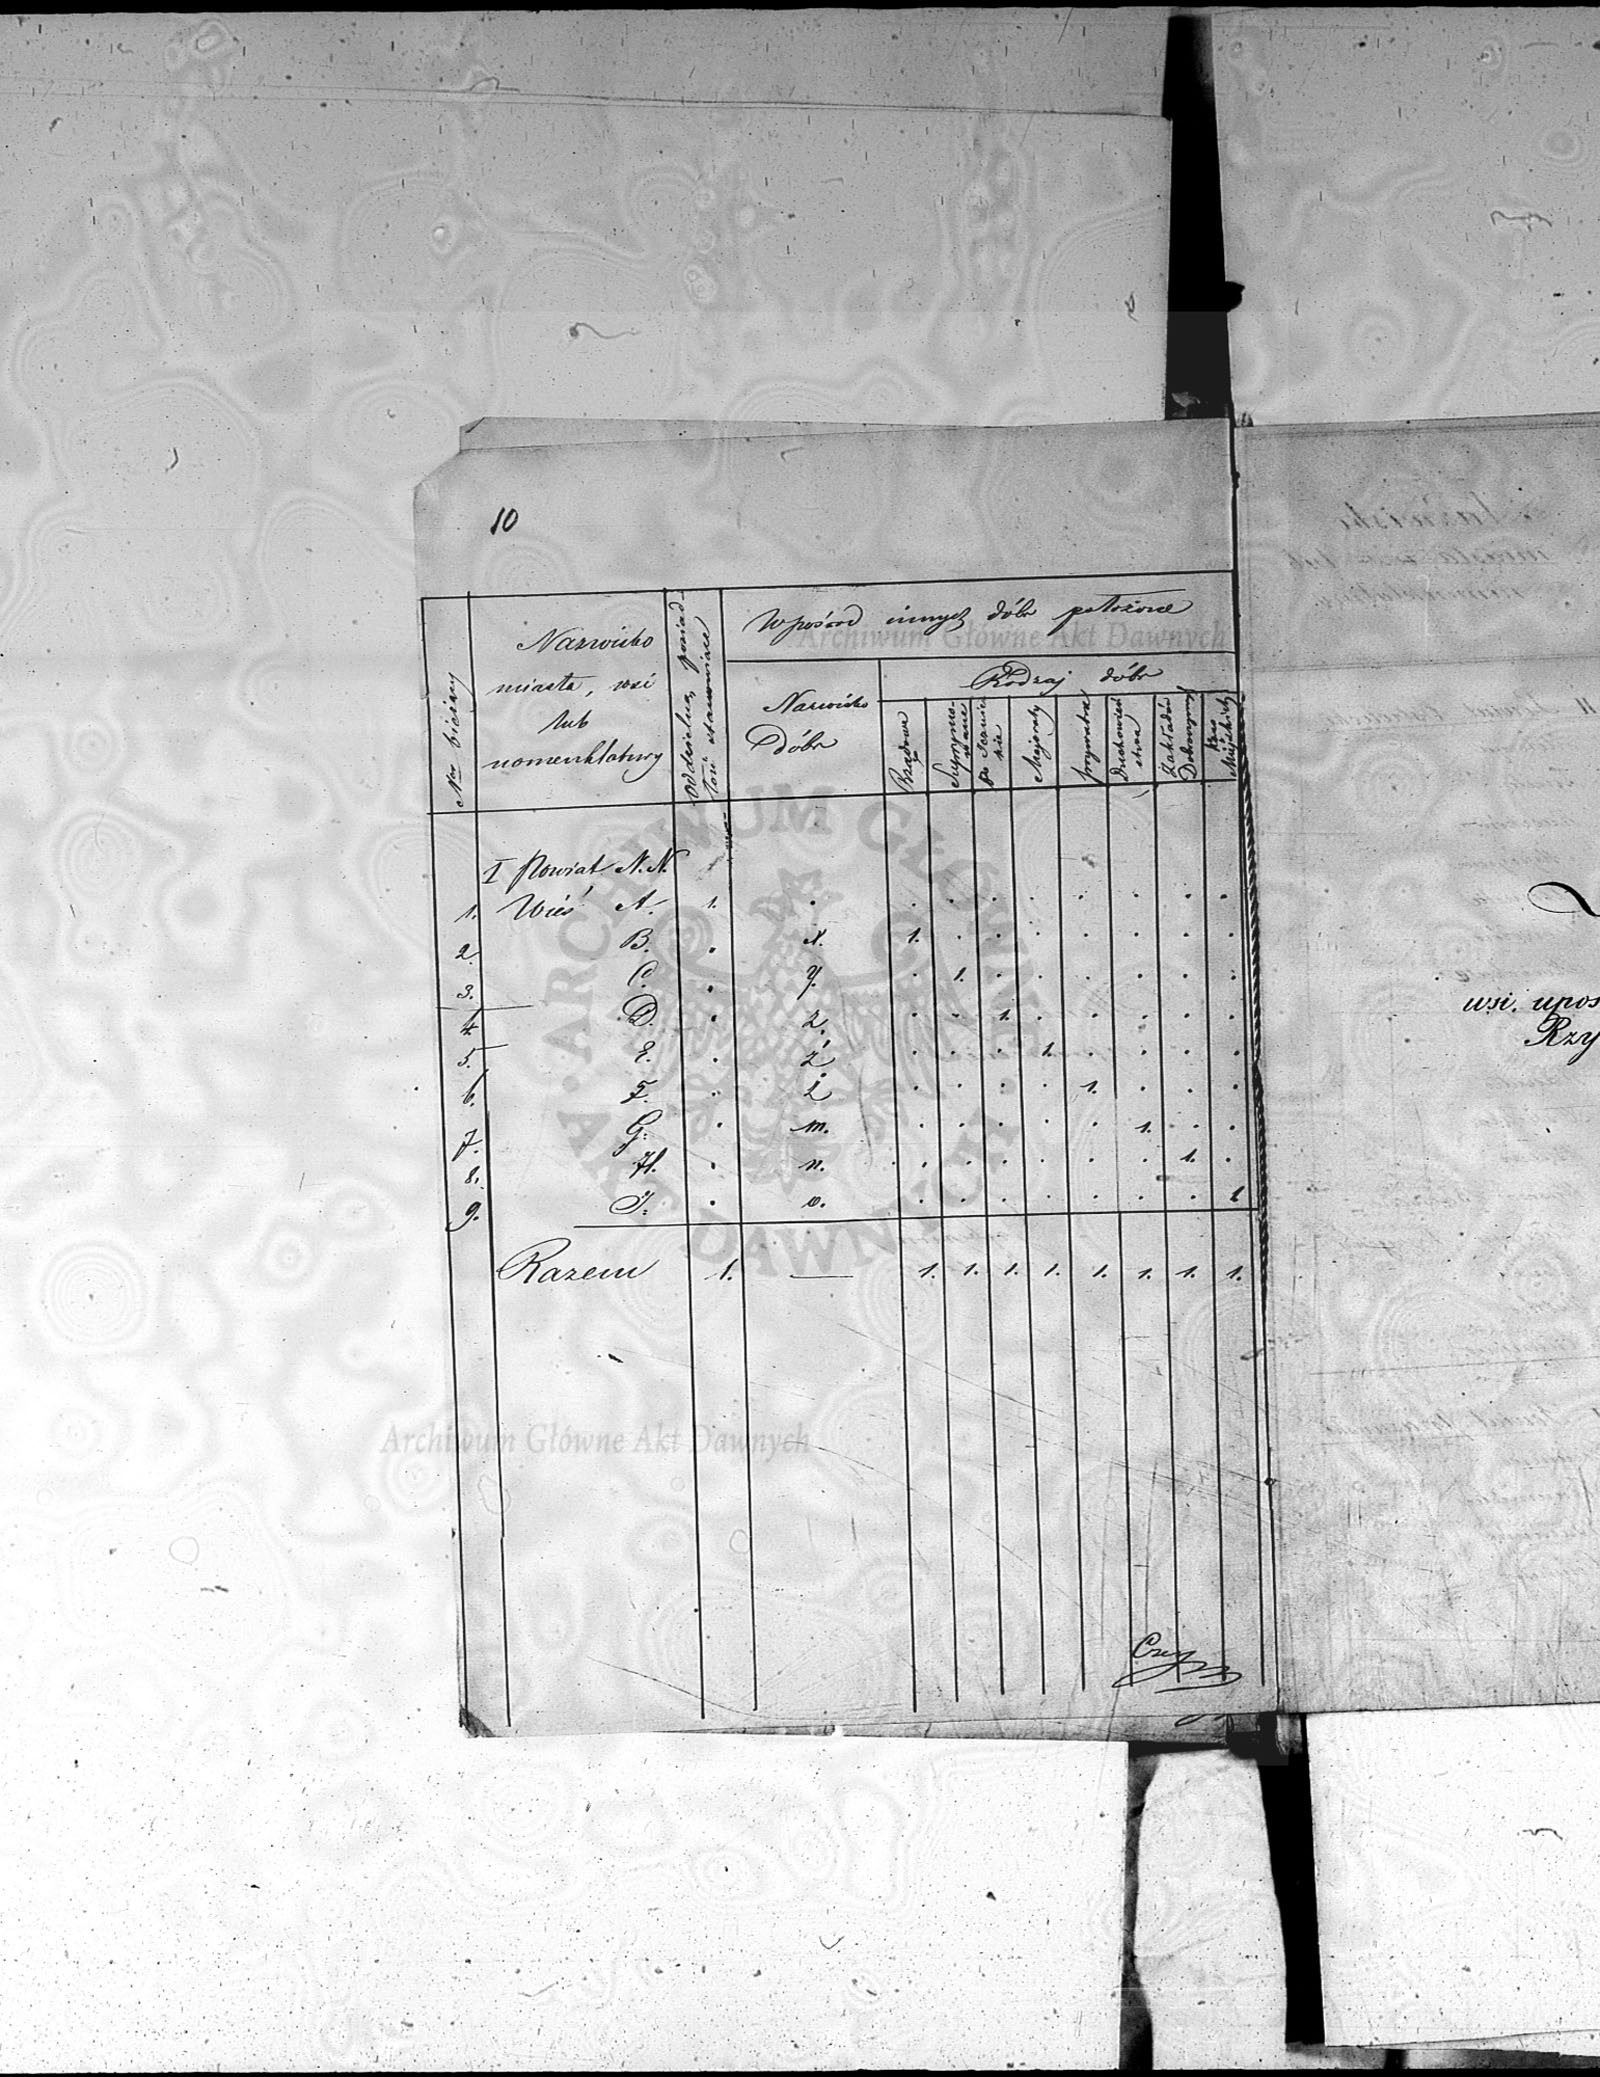 10
Nr bieżący
Nazwisko
miasta, wsi
lub
nomenklatury
Oddzielną posiad-
łość stanowiące
Wpośród innych dóbr położone
Nazwisko
Dóbr
Rodzaj dóbr
Rządowe
Supprymo-
wane
Po Jezuic-
kie
Majoraty
prywatne
Duchowień
stwa
Zakładów
Dobroczynnych
Kass
Miejskich
I Powiat N.N.
1. Wieś A. 1. . . . . . . . . .
2. B. . X. 1. . . . . . . .
3. C. . y. . 1. . . . . . .
4. D. . z. . . 1. . . . . .
5. E. . ź . . . 1. . . . .
6. F. . ż . . . . 1. . . .
7. G. . m. . . . . . 1. . .
8. H. . n. . . . . . . 1. .
9. I. . o. . . . . . . . 1
Razem 1. — 1. 1. 1. 1. 1. 1. 1. 1.
wsi, upos
Rzy
Archiwum Główne Akt Dawnych
ARCHIWUM GŁÓWNE AKT DAWNYCH
Archiwum Główne Akt Dawnych